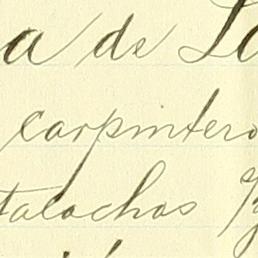 a de
carpintero
talachas